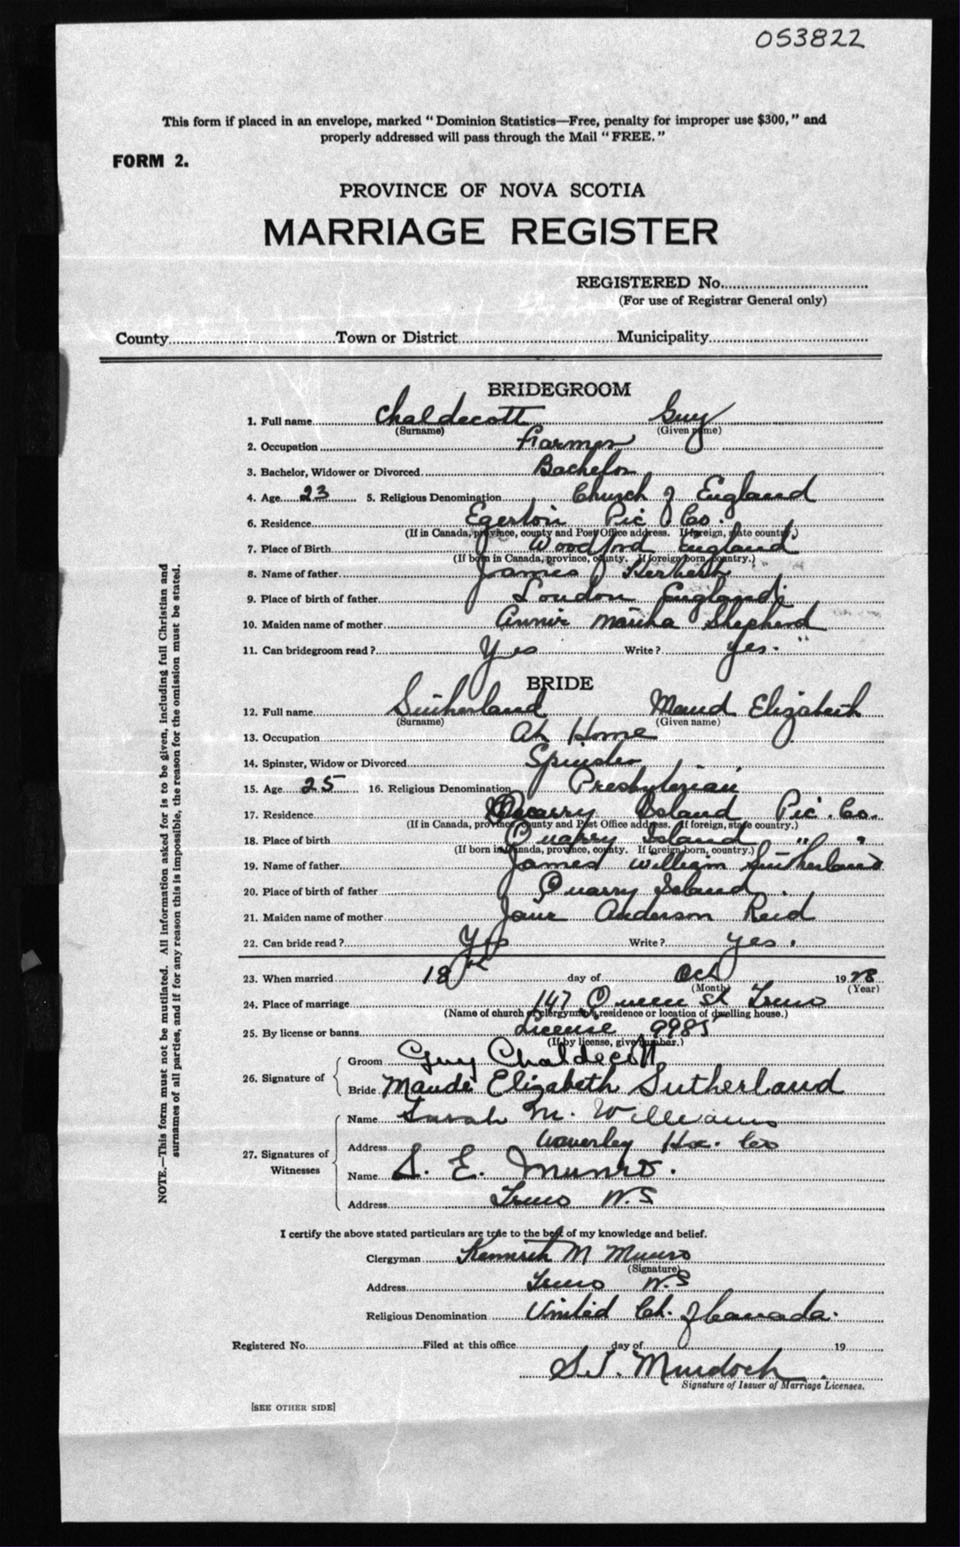 053822
This form if placed in an envelope, marked "Dominion Statistics—Free, penalty for improper use $300," and
properly addressed will pass through the Mail "FREE."
FORM 2.
PROVINCE OF NOVA SCOTIA
MARRIAGE REGISTER
REGISTERED No.
(For use of Registrar General only)
County Town or District Municipality
BRIDEGROOM
1. Full name Chaldecott Guy
(Surname) (Given name)
2. Occupation Farmer
3. Bachelor, Widower or Divorced Bachelor
4. Age 23 5. Religious Denomination Church of England
6. Residence Egerton Pic Co.
(If in Canada, province, county and Post Office address. If foreign, state country.)
7. Place of Birth Woodford England
(If born in Canada, province, county. If foreign born, country.)
8. Name of father James Herbert
9. Place of birth of father London England
10. Maiden name of mother Annie Martha Shepherd
11. Can bridegroom read? Yes Write? Yes. "
BRIDE
12. Full name Sutherland Maud Elizabeth
(Surname) (Given name)
13. Occupation At Home
14. Spinster, Widow or Divorced Spinster
15. Age 25 16. Religious Denomination Presbyterian
17. Residence Quarry Island Pic. Co.
(If in Canada, province, county and Post Office address. If foreign, state country.)
18. Place of birth Quarry Island " "
(If born in Canada, province, county. If foreign born, country.)
19. Name of father James William Sutherland
20. Place of birth of father Quarry Island.
21. Maiden name of mother Jane Anderson Reid
22. Can bride read? Yes Write? yes.
23. When married 18th day of Oct 1928
(Month) (Year)
24. Place of marriage 147 Queen St Truro
(Name of church or clergyman's residence or location of dwelling house.)
25. By license or banns License 9985
(If by license, give number.)
26. Signature of
Groom Guy Chaldecott
Bride Maude Elizabeth Sutherland
27. Signatures of Witnesses
Name Sarah M. Williams
Address Waverley Hx. Co
Name S. E. Munro.
Address Truro N.S
I certify the above stated particulars are true to the best of my knowledge and belief.
Clergyman Kenneth M Munro
(Signature)
Address Truro N.S
Religious Denomination United Ch. of Canada.
Registered No. Filed at this office day of 19
Murdoch
Signature of Issuer of Marriage Licenses.
[SEE OTHER SIDE]
NOTE.—This form must not be mutilated. All information asked for is to be given, including full Christian and
surnames of all parties, and if for any reason this is impossible, the reason for the omission must be stated.